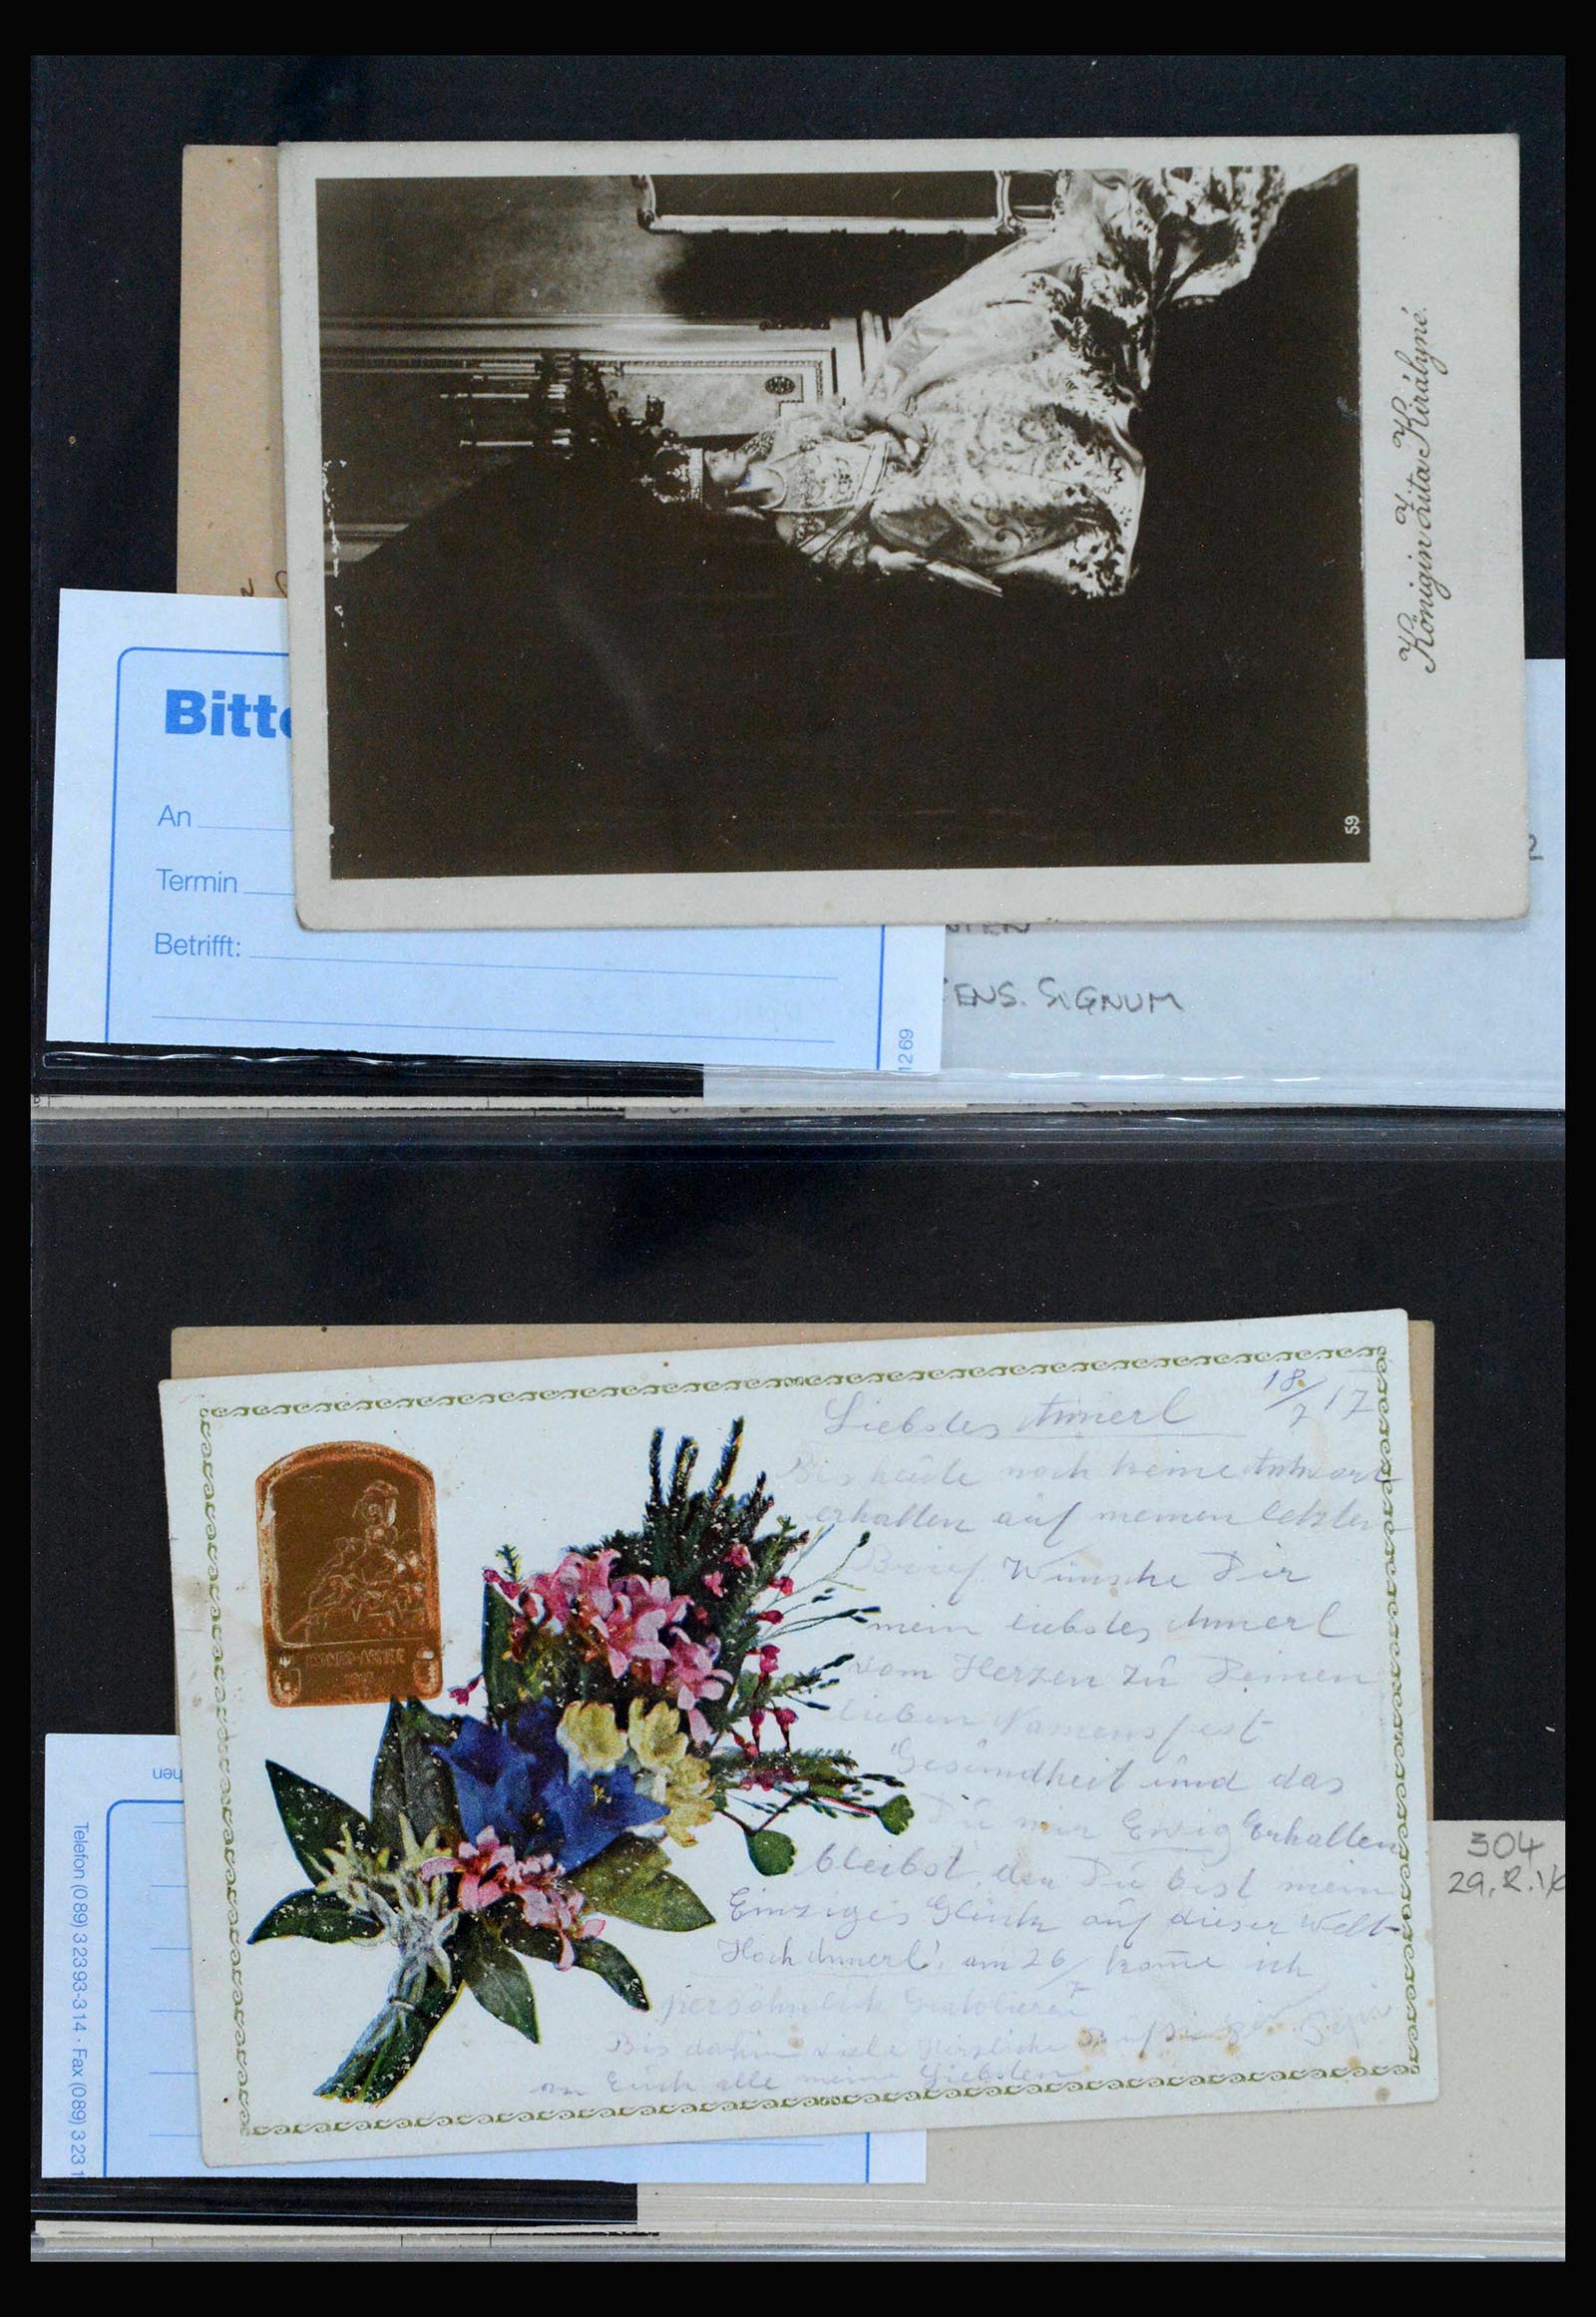 Königin Zita Királyné.
59
Bitte
An
Termin
Betrifft:
1269
ENS. SIGNUM
18/7 17
Liebstes Annerl
Bis heute noch keine Antwort
erhalten auf meinen letzten
Brief. Wünsche Dir
mein liebstes Annerl
vom Herzen zu Deinen
lieben Namensfest
Gesundheit und das
Du mir Ewig Erhallen
bleibst, den Du bist mein
Einziges Glück auf dieser Welt
Hoch Annerl! am 26/7 kom̄e ich
persöhnlich
Bis dahin viele Herzliche
an Euch alle meine Liebsten
304
29.R.
hen
Telefon (089) 32393-314 · Fax (089) 323 1